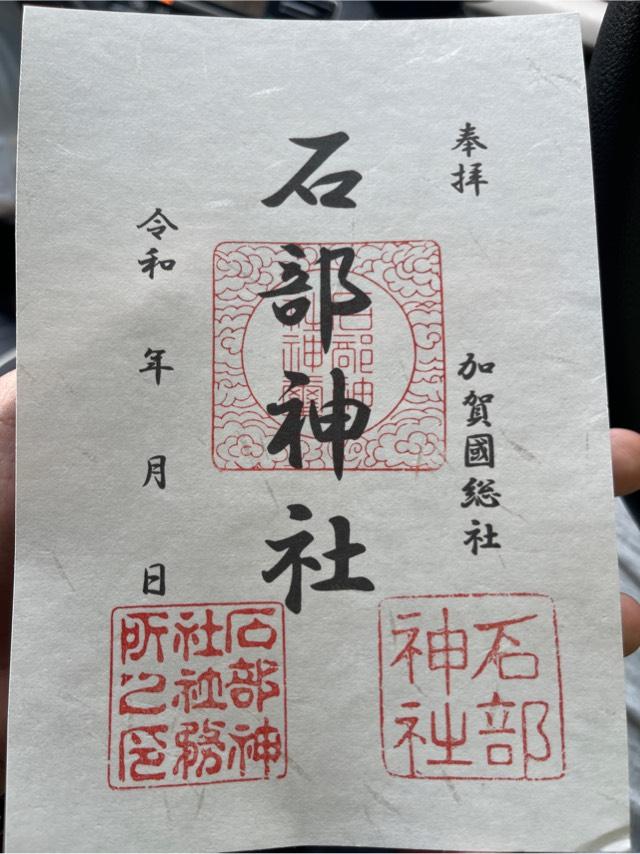 奉拝
加賀國総社
石部神社
石部神
社神璽
令和 年 月 日
石部
神社
石部神
社社務
所之印